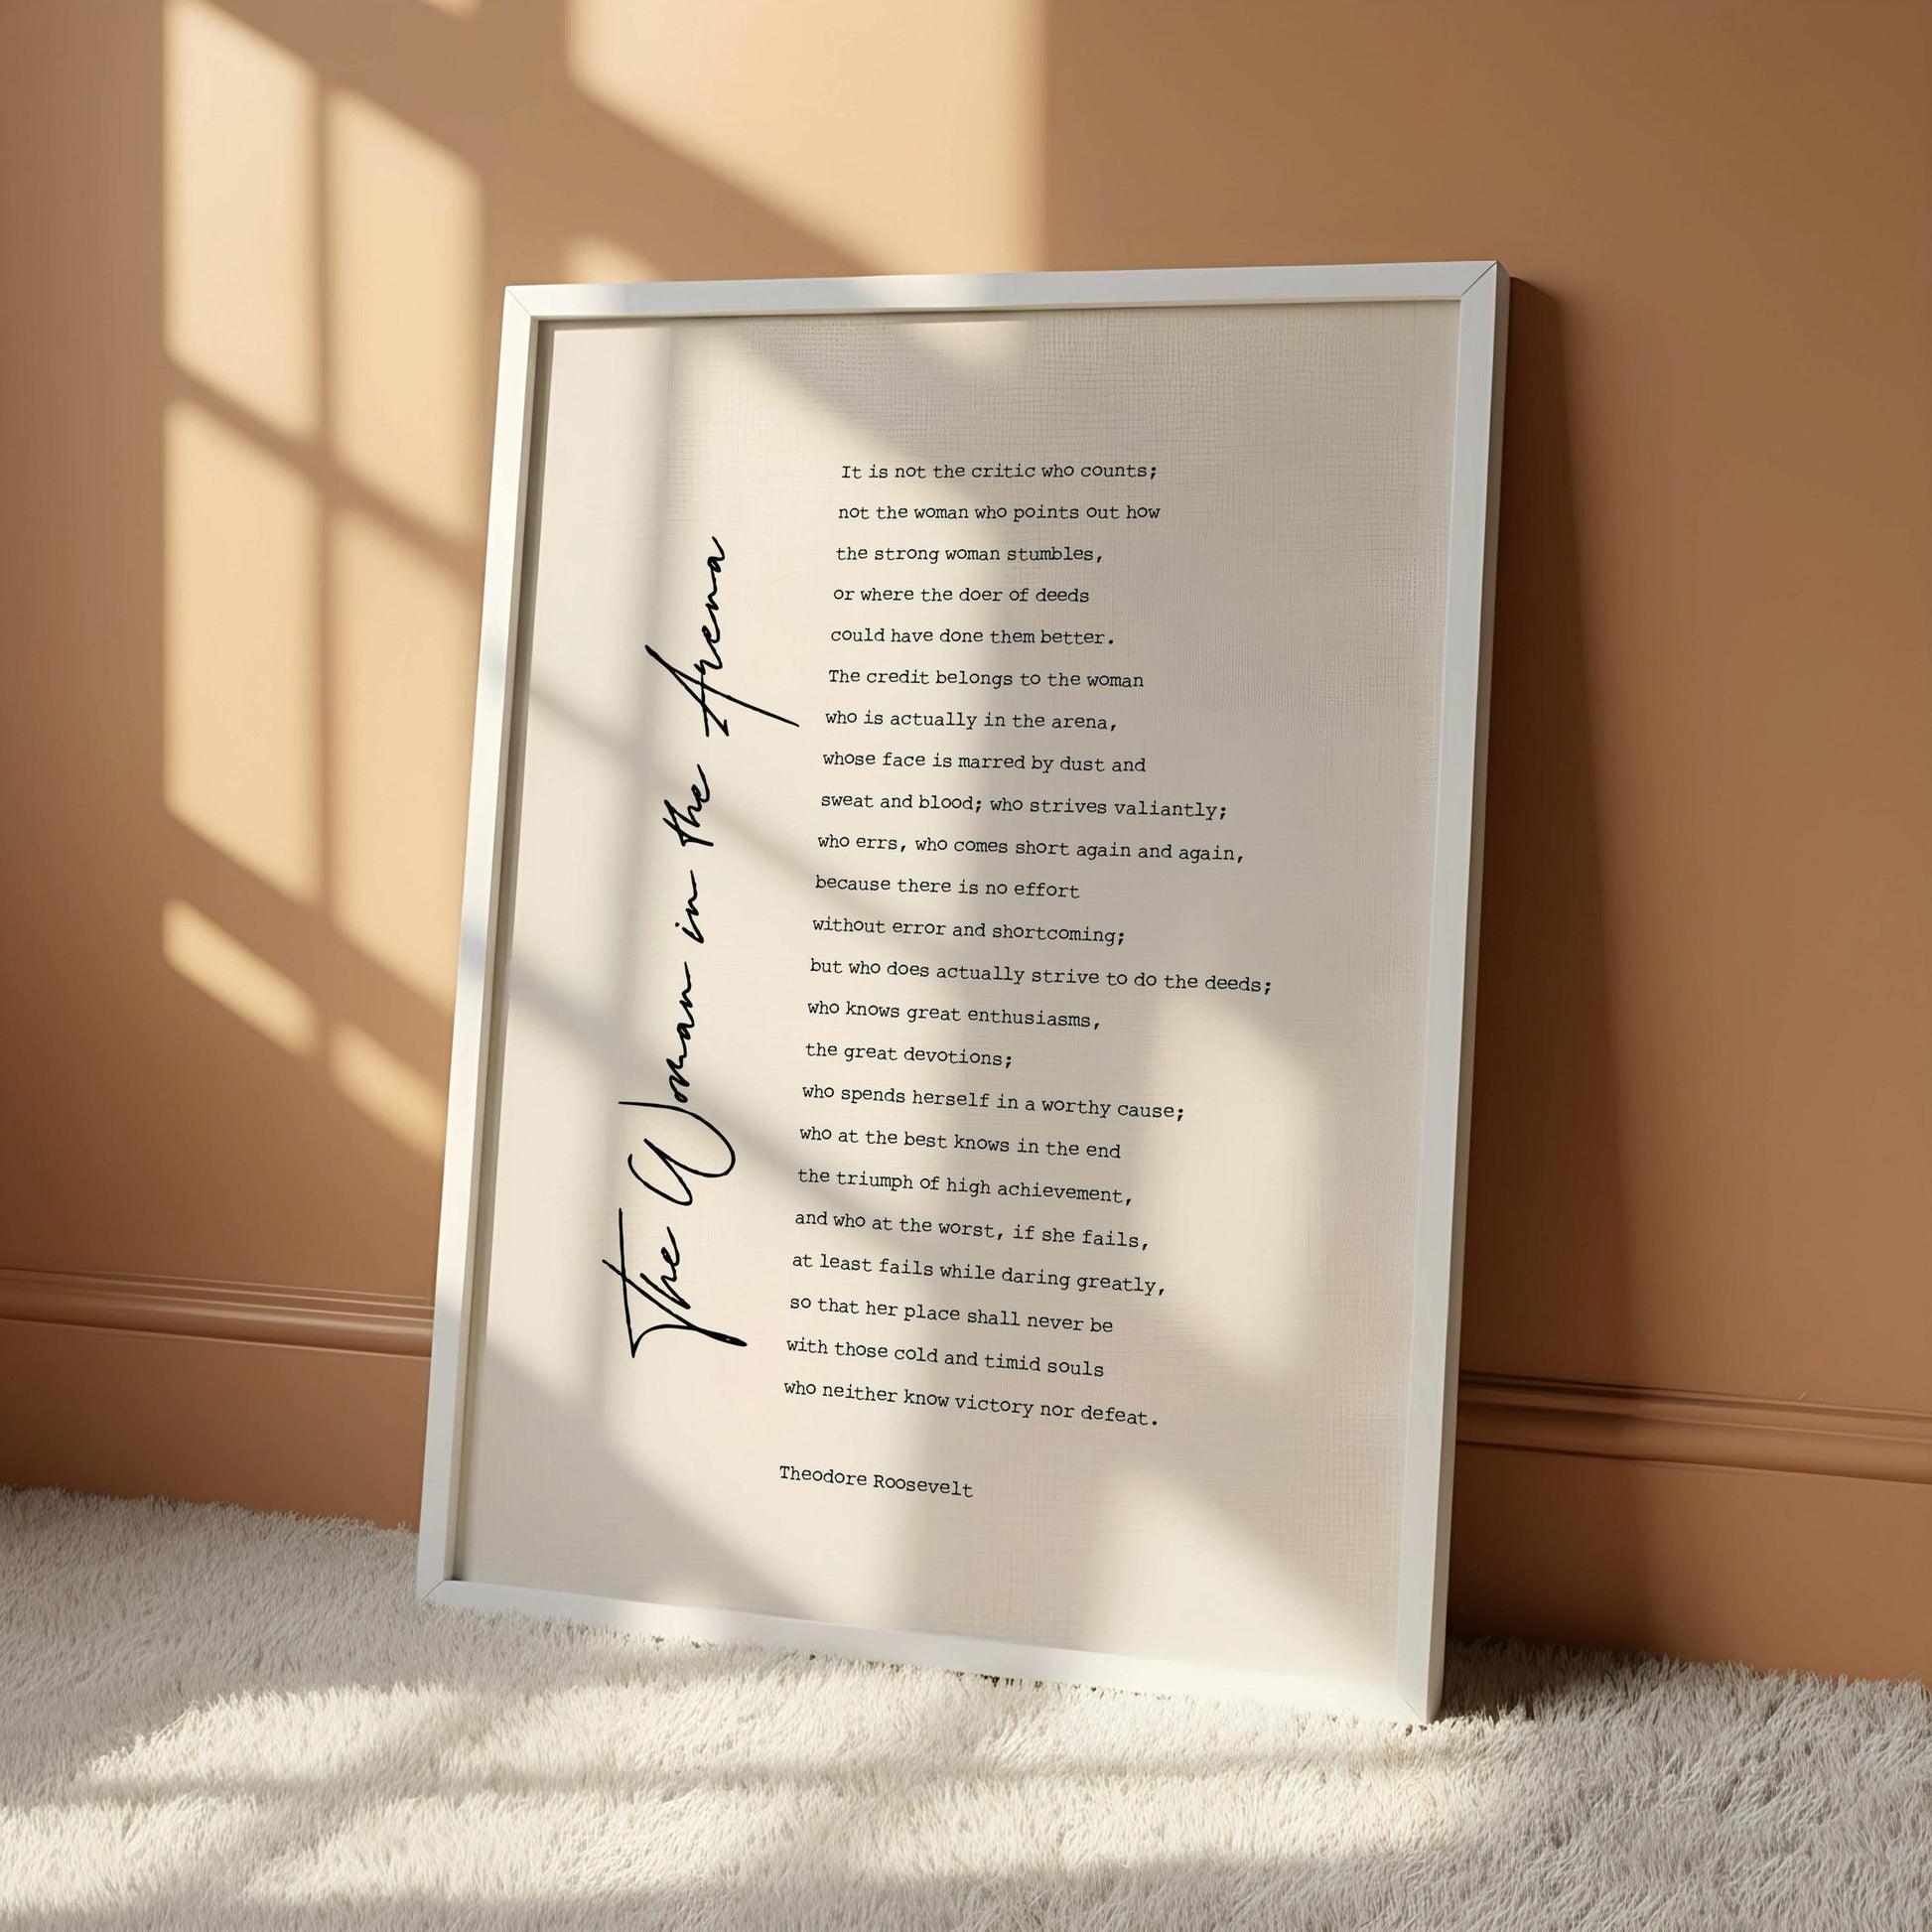 The Woman in the Arena
It is not the critic who counts;
not the woman who points out how
the strong woman stumbles,
or where the doer of deeds
could have done them better.
The credit belongs to the woman
who is actually in the arena,
whose face is marred by dust and
sweat and blood; who strives valiantly;
who errs, who comes short again and again,
because there is no effort
without error and shortcoming;
but who does actually strive to do the deeds;
who knows great enthusiasms,
the great devotions;
who spends herself in a worthy cause;
who at the best knows in the end
the triumph of high achievement,
and who at the worst, if she fails,
at least fails while daring greatly,
so that her place shall never be
with those cold and timid souls
who neither know victory nor defeat.
Theodore Roosevelt